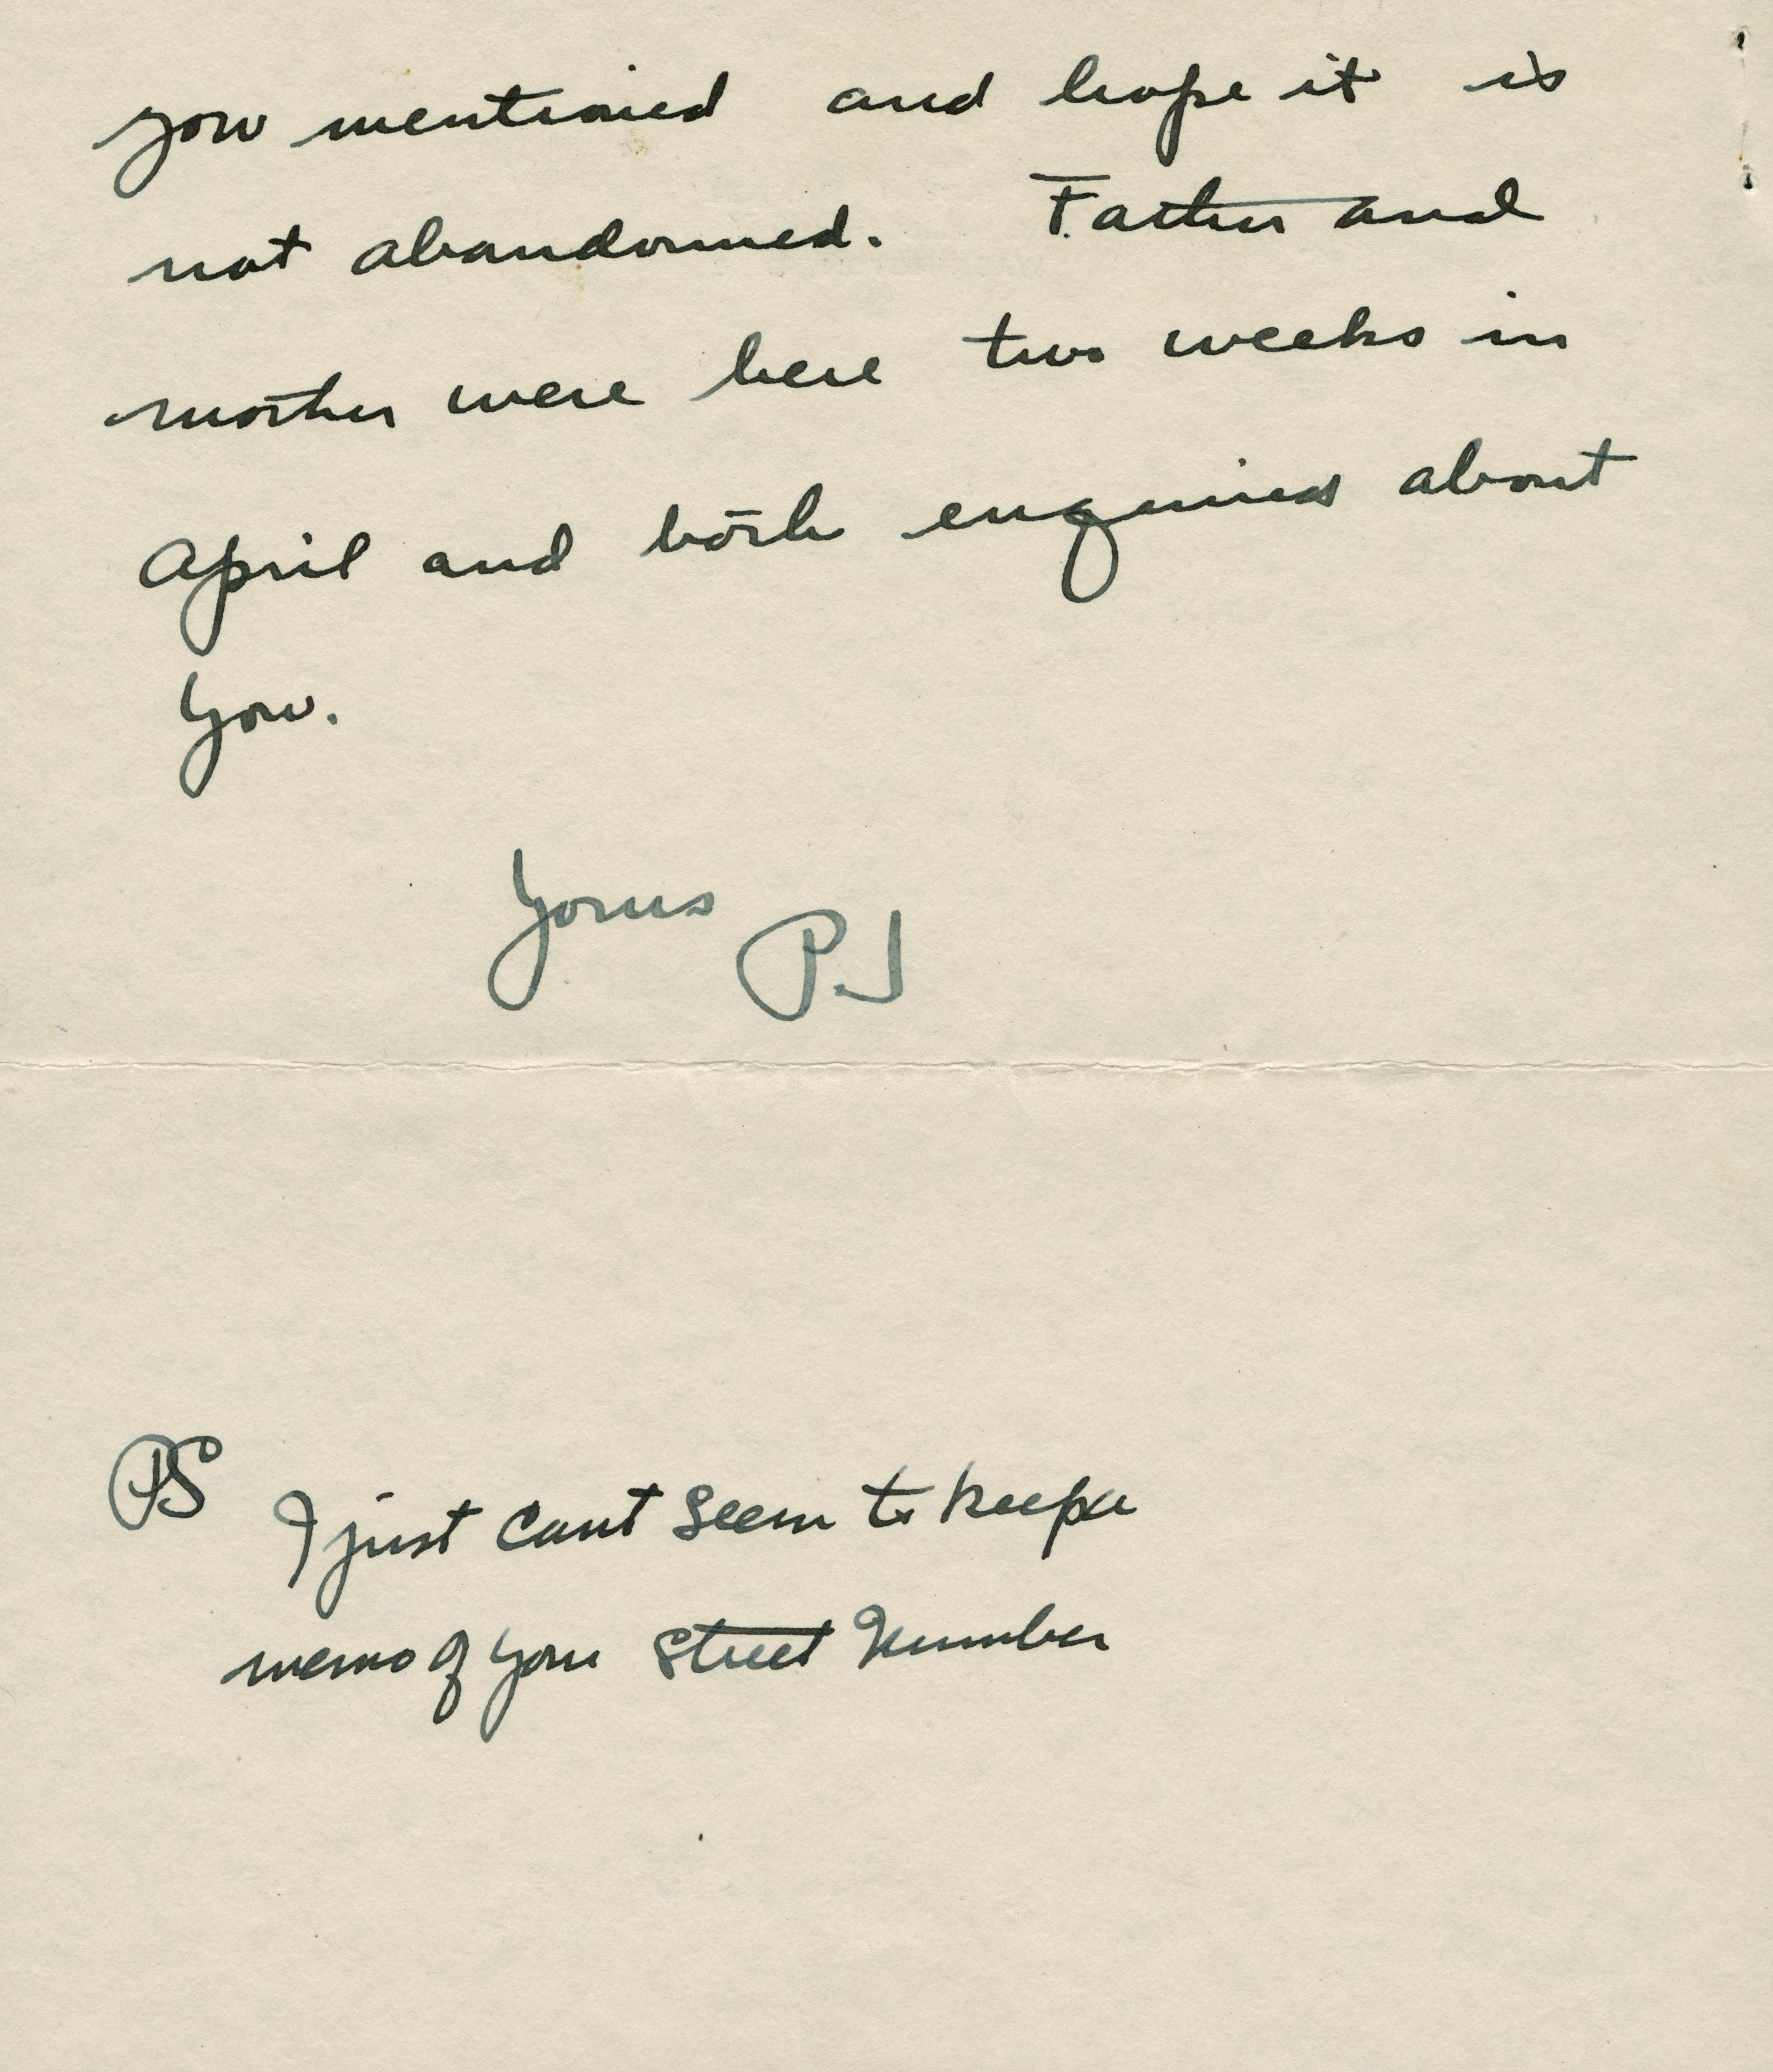 you mentioned and hope it is
not abandonned. Father and
mother were here two weeks in
April and both enquired about
you.
Yours
P.J
PS I just cant seem to keep a
memo of your street Number